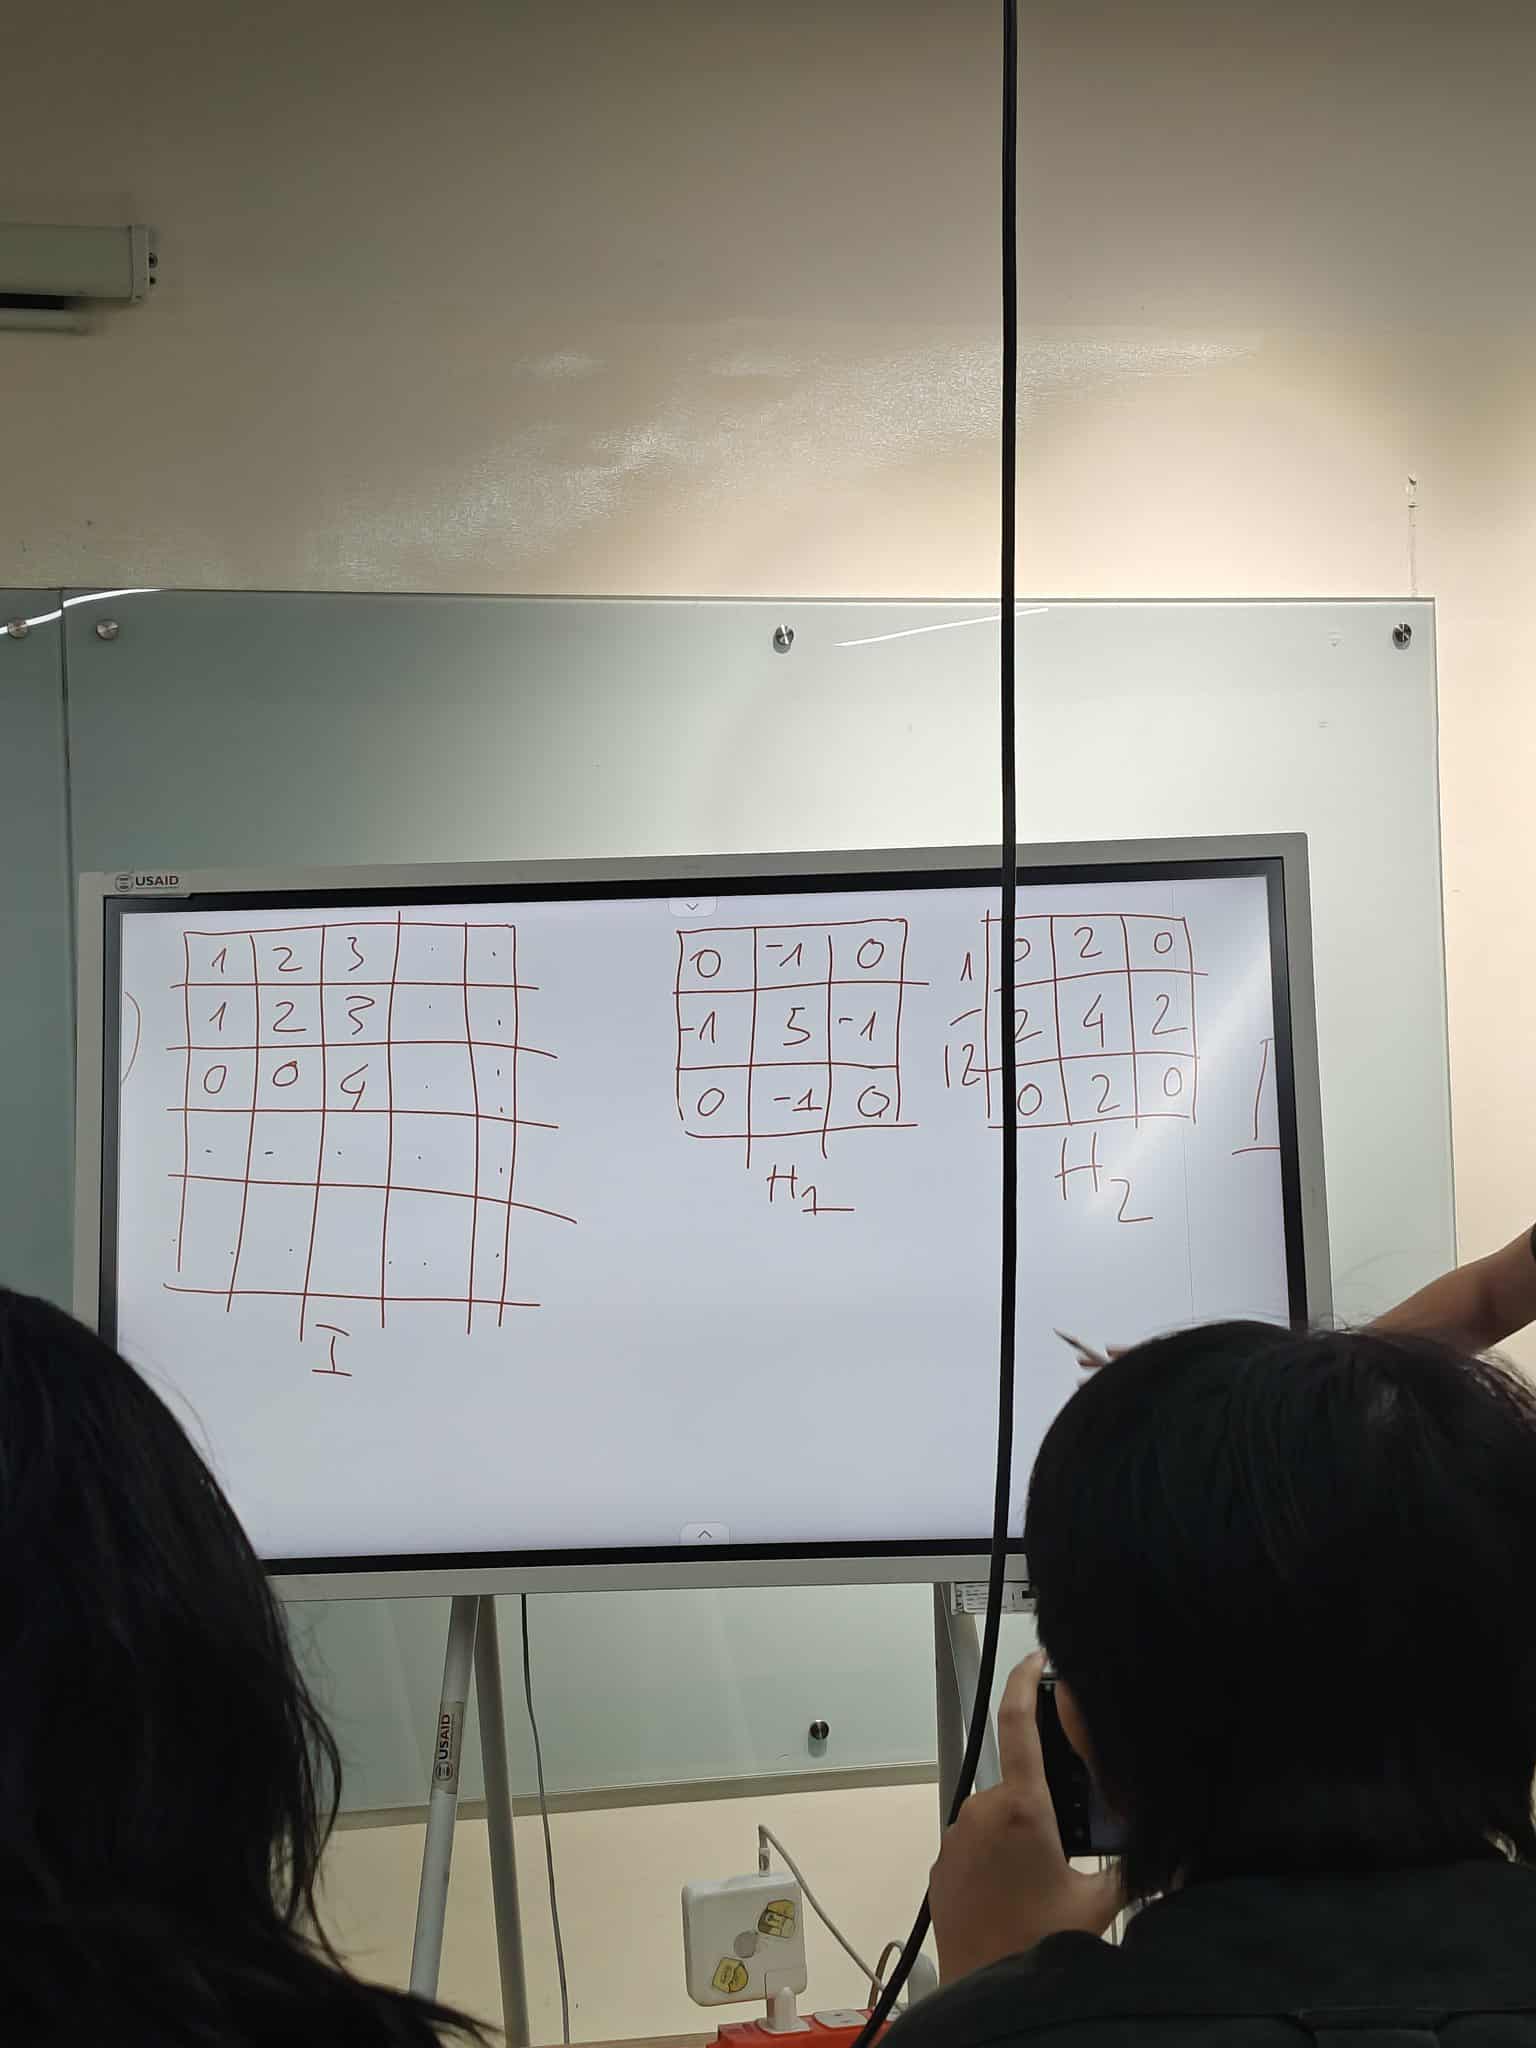 USAID
1 2 3 . .
1 2 3 . .
0 0 4 . .
. . . . .
. . . . . .
I
0 -1 0
-1 5 -1
0 -1 0
H1
1
-
12
0 2 0
2 4 2
0 2 0
H2
USAID